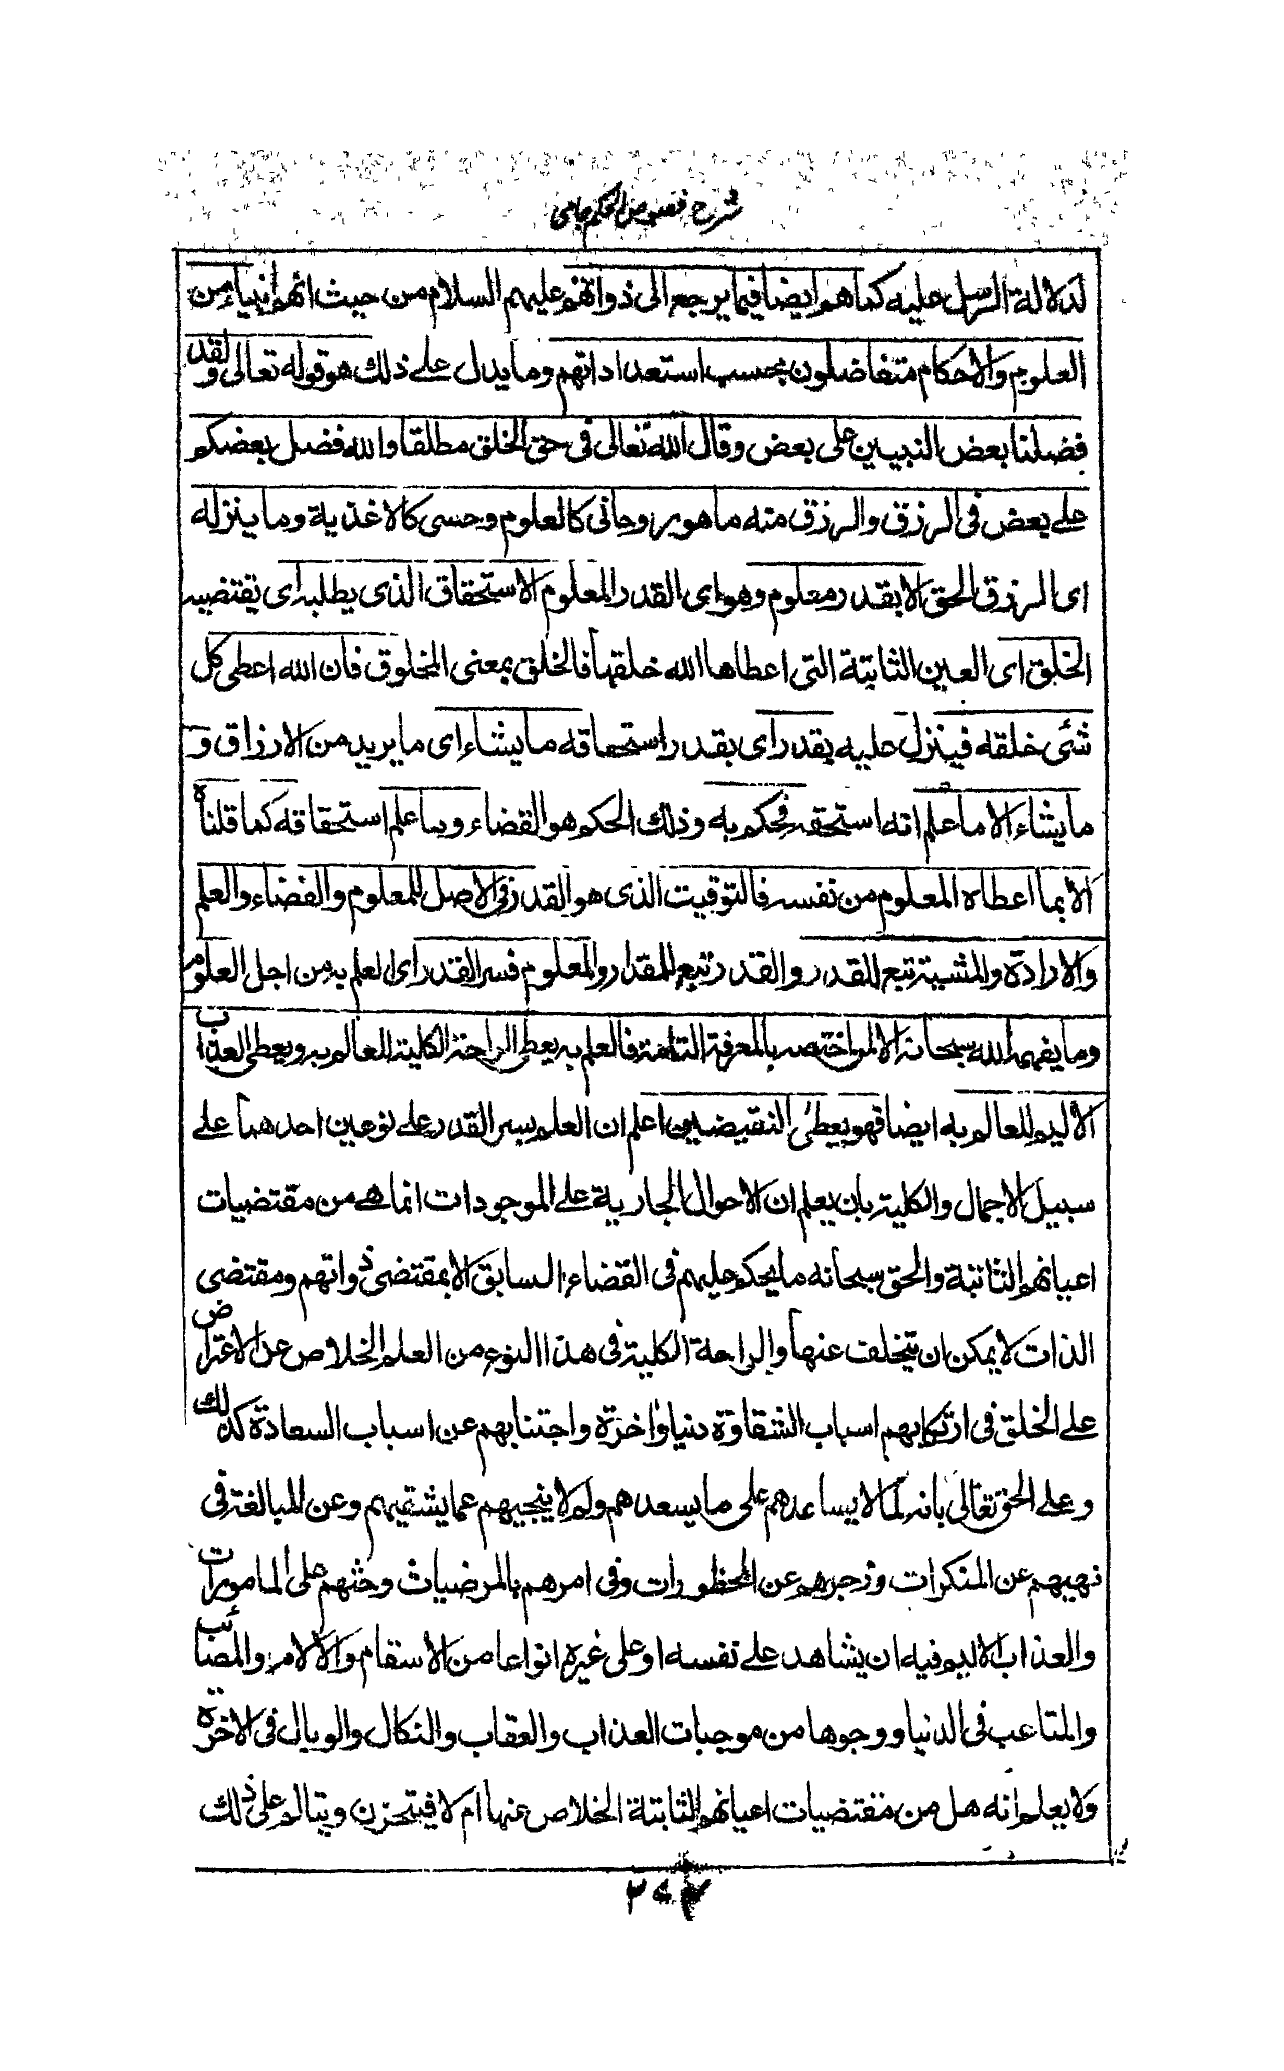 شرح فصوص الحكم جامى
لدلالة الرسل عليه كما هو ايضا فيما يرجع الى ذواتهم عليهم السلام من حيث انهم انبياء من
العلوم والاحكام متفاضلون بحسب استعداداتهم وما يدل على ذلك هو قوله تعالى ولقد
فضلنا بعض النبيين على بعض وقال الله تعالى فى حق الخلق مطلقا والله فضل بعضكم
على بعض فى الرزق والرزق منه ما هو روحانى كالعلوم وحسى كالاغذية وما ينزله
اى الرزق الحق الا بقدر معلوم وهو اى القدر المعلوم الاستحقاق الذى يطلبه اى يقتضيه
الخلق اى العين الثابتة التى اعطاها الله خلقها فالخلق بمعنى المخلوق فان الله اعطى كل
شئ خلقه فينزل عليه بقدر اى بقدر استحقاقه ما يشاء اى ما يريد من الارزاق و
ما يشاء الا ما علم انه استحقه فحكم به وذلك الحكم هو القضاء وما علم استحقاقه كما قلناه
الا بما اعطاه المعلوم من نفسه فالتوقيت الذى هو القدر فى الاصل للمعلوم والقضاء والعلم
والارادة والمشية تبع للقدر والقدر تبع للمقدار والمعلوم فسر القدر اى العلم به من اجل العلوم
وما يفهمه الله سبحانه الا لمن اختصه بالمعرفة التامة فالعلم به يعطى الراحة الكلية العالم به ويعطى العذاب
الاليم للعالم به ايضا فهو يعطى النقيضين اعلم ان العلم بسر القدر على نوعين احدهما على
سبيل الاجمال والكلية بان يعلم ان الاحوال الجارية على الموجودات انما هے من مقتضيات
اعيانهم الثابتة والحق سبحانه ما يحكم عليهم فى القضاء السابق الا بمقتضى ذواتهم ومقتضى
الذات لا يمكن ان يتخلف عنها والراحة الكلية فى هذا النوع من العلم الخلاص عن الاعتراض
على الخلق فى ارتكابهم اسباب الشقاوة دنيا واخرة واجتنابهم عن اسباب السعادة كذلك
وعلى الحق تعالى بانه لما لا يساعدهم على ما يسعدهم ولم لا ينجيهم عما يشقيهم وعن المبالغة فى
نهيهم عن المنكرات وزجرهم عن المحظورات وفى امرهم بالمرضيات وحثهم على المامورات
والعذاب الاليم فيه ان يشاهد على نفسه او على غيره انواعا من الاسقام والالام والمصائب
والمتاعب فى الدنيا ووجوها من موجبات العذاب والعقاب والنكال والوبال فى الاخرة
ولا يعلم انه هل من مقتضيات اعيانهم الثابتة الخلاص عنها ام لا فيتحزن ويتالم على ذلك